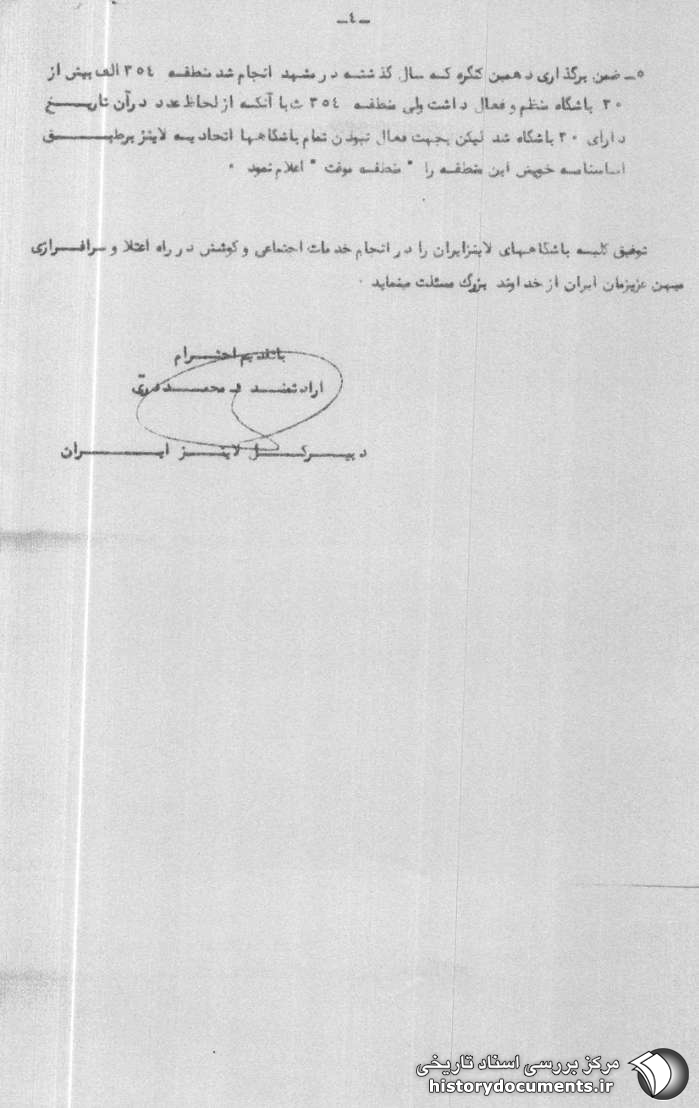 -٤-
٥- ضمن برگذاری دهمین کنگره که سال گذشته در مشهد انجام شد منطقه ٣٥٤ الف بیش از
٢٠ باشگاه منظم و فعال داشت ولی منطقه ٣٥٤ ث با آنکه از لحاظ عدد در آن تاریخ
دارای ٢٠ باشگاه شد لیکن بجهت فعال نبودن تمام باشگاهها اتحادیه لاینز برطبق
اساسنامه خویش این منطقه را " منطقه موقت " اعلام نمود .
توفیق کلیه باشگاههای لاینز ایران را در انجام خدمات اجتماعی و کوشش در راه اعتلا و سرافرازی
میهن عزیزمان ایران از خداوند بزرگ مسئلت مینماید .
با تقدیم احترام
ارادتمند محمد
دبیر کل لاینز ایران
مرکز بررسی اسناد تاریخی
historydocuments.ir